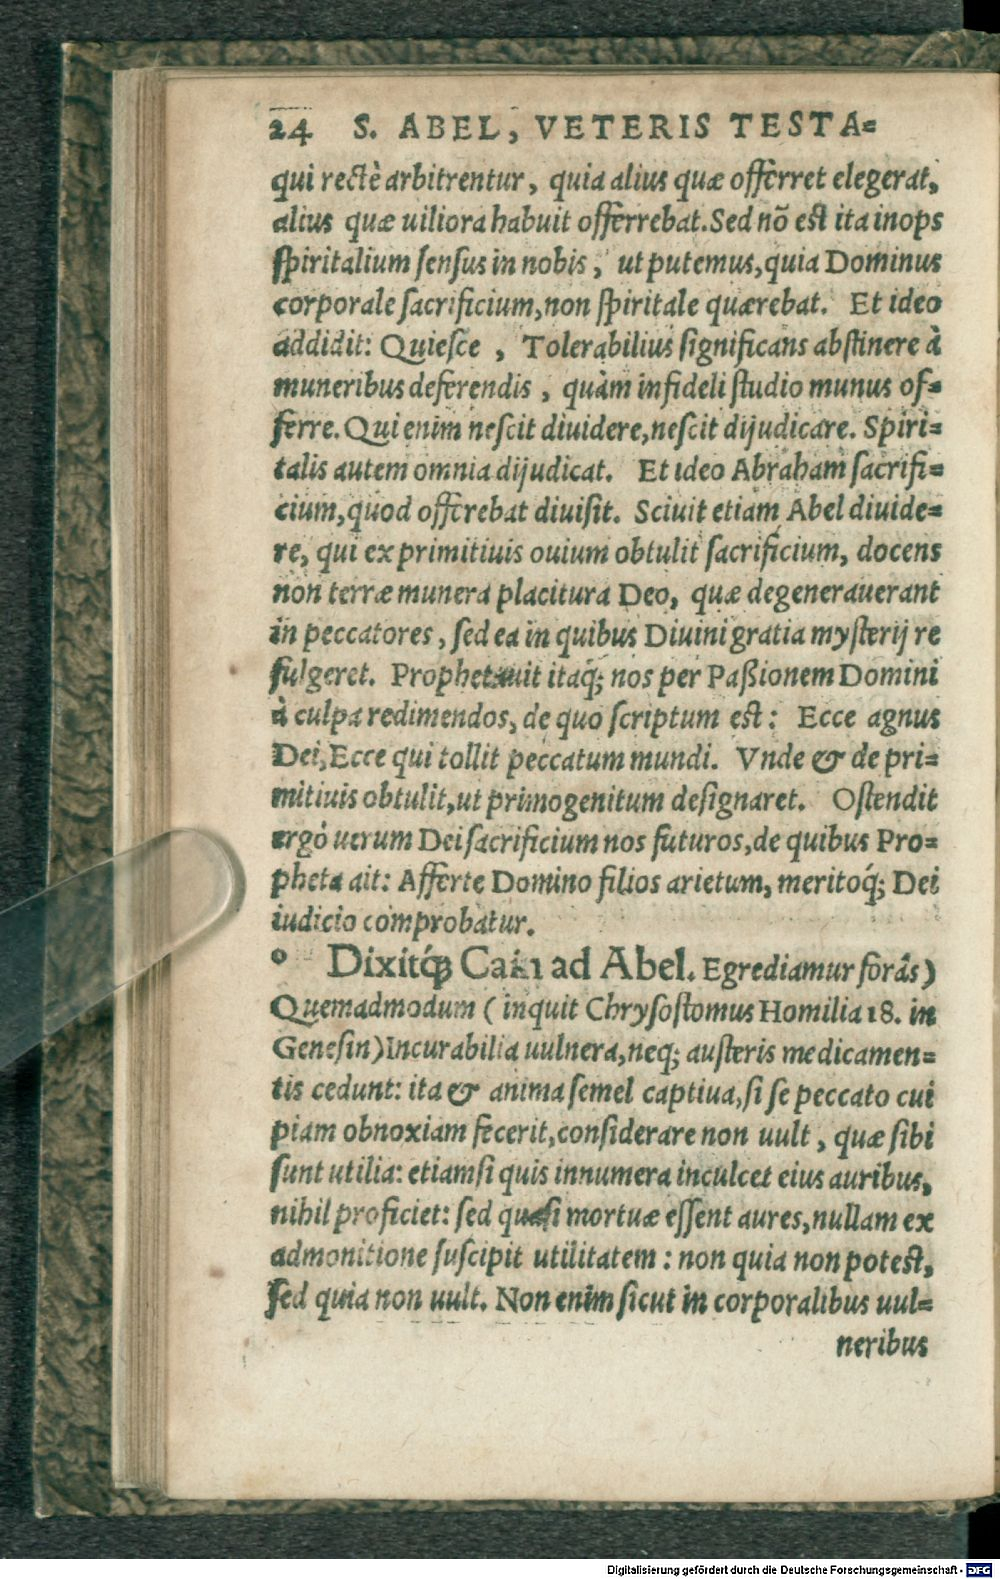 24 S. ABEL, VETERIS TESTA=
qui rectè arbitrentur, quia alius quæ offerret elegerat,
alius quæ uiliora habuit offerrebat. Sed nõ est ita inops
spiritalium sensus in nobis, ut putemus, quia Dominus
corporale sacrificium, non spiritale quærebat. Et ideo
addidit: Quiesce, Tolerabilius significans abstinere à
muneribus deferendis, quàm infideli studio munus of=
ferre. Qui enim nescit diuidere, nescit dijudicare. Spiri=
talis autem omnia dijudicat. Et ideo Abraham sacrifi=
cium, quod offerebat diuisit. Sciuit etiam Abel diuide=
re, qui ex primitiuis ouium obtulit sacrificium, docens
non terræ munera placitura Deo, quæ degenerauerant
in peccatores, sed ea in quibus Diuini gratia mysterij re
fulgeret. Prophetauit itaq́; nos per Paßionem Domini
à culpa redimendos, de quo scriptum est: Ecce agnus
Dei, Ecce qui tollit peccatum mundi. Vnde & de pri=
mitiuis obtulit, ut primogenitum designaret. Ostendit
ergò uerum Dei sacrificium nos futuros, de quibus Pro=
pheta ait: Afferte Domino filios arietum, meritoq́; Dei
iudicio comprobatur.
o Dixitq́; Cain ad Abel. Egrediamur forâs)
Quemadmodum (inquit Chrysostomus Homilia 18. in
Genesin) Incurabilia uulnera, neq; austeris medicamen=
tis cedunt: ita & anima semel captiua, si se peccato cui
piam obnoxiam fecerit, considerare non uult, quæ sibi
sunt utilia: etiamsi quis innumera inculcet eius auribus,
nihil proficiet: sed quasi mortuæ essent aures, nullam ex
admonitione suscipit utilitatem: non quia non potest,
sed quia non uult. Non enim sicut in corporalibus uul=
neribus
Digitalisierung gefördert durch die Deutsche Forschungsgemeinschaft - DFG